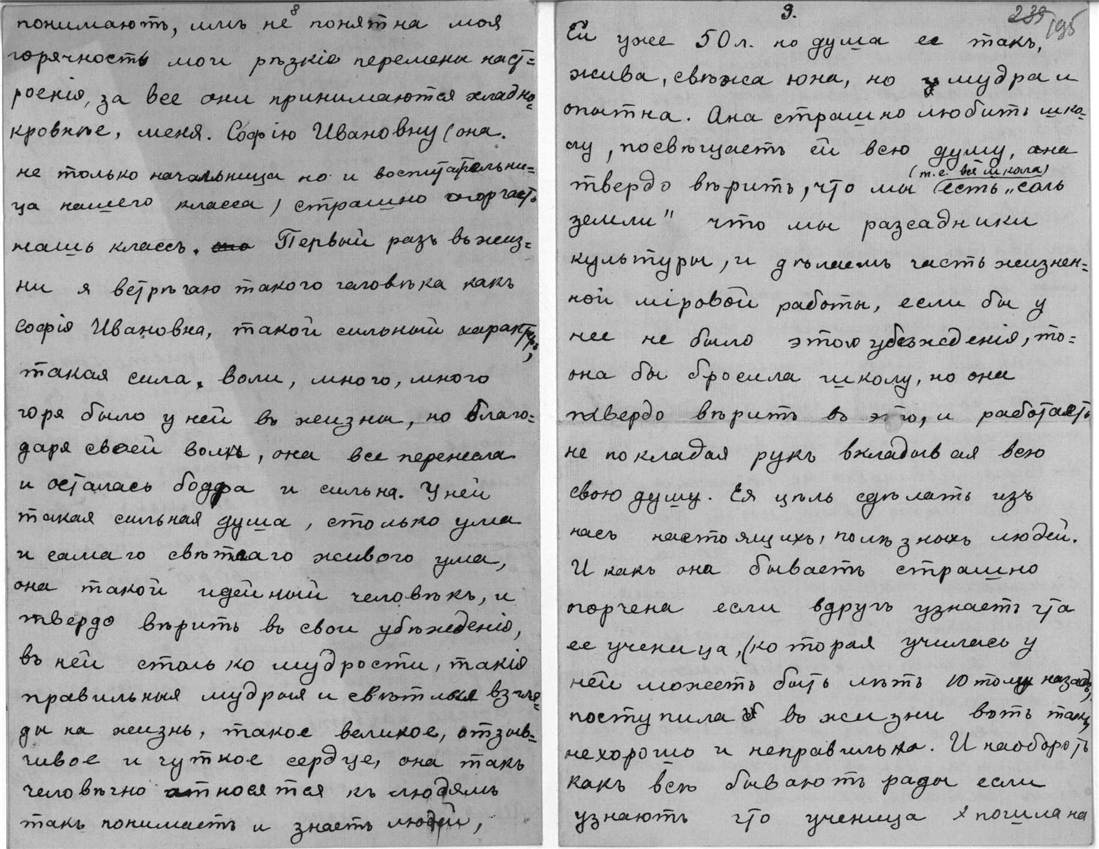 8
понимаютъ, имъ не понятна моя
горячность мои рѣзкіе перемена наст=
роенія, за все они принимаются хладно-
кровнѣе, меня. Софію Ивановну (она
не только начальница но и воспитательни-
ца нашего класса) страшно огорчаетъ
нашъ классъ. Первый разъ въ жиз=
ни я встрѣчаю такого человѣка какъ
Софія Ивановна, такой сильный характеръ,
такая сила, воли, много, много
горя было у ней въ жизни, но благо=
даря своей воли, она все перенесла
и осталась бодра и сильна. У ней
такая сильная душа, столько ума
и самаго свѣтлаго живого ума,
она такой идейный человѣкъ, и
твердо вѣритъ въ свои убѣжденія,
въ ней столько мудрости, такія
правильныя мудрыя и свѣтлыя взгля-
ды на жизнь, такое великое, отзыв=
чивое и чуткое сердце, она такъ
человѣчно относятся къ людямъ
такъ понимаетъ и знаетъ людей,
9.
239 195
Ей уже 50 л. но душа ее такъ,
жива, свѣжа юна, но мудра и
опытна. Она страшно любитъ шко-
лу, посвѣщаетъ ей всю душу, она
(т.е вся школа)
твердо вѣритъ, что мы есть „соль
земли" что мы разсадники
культуры, и дѣлаемъ часть жизнен=
ной міровой работы, если бы у
нее не было этого убежденія, то=
она бы бросила школу, но она
твердо вѣритъ въ это, и работаетъ
не покладая рукъ вкладывая всю
свою душу. Ея цѣль сдѣлать изъ
насъ настоящихъ, полѣзныхъ людей.
И какъ она бываетъ страшно
огорчена если вдругъ узнаетъ что
ее ученица, (которая училась у
ней можетъ быть лѣтъ 10 тому назадъ,
поступила въ жизни вотъ такъ,
нехорошо и неправильно. И наоборотъ
какъ всѣ бываютъ рады если
узнаютъ что ученица пошла на